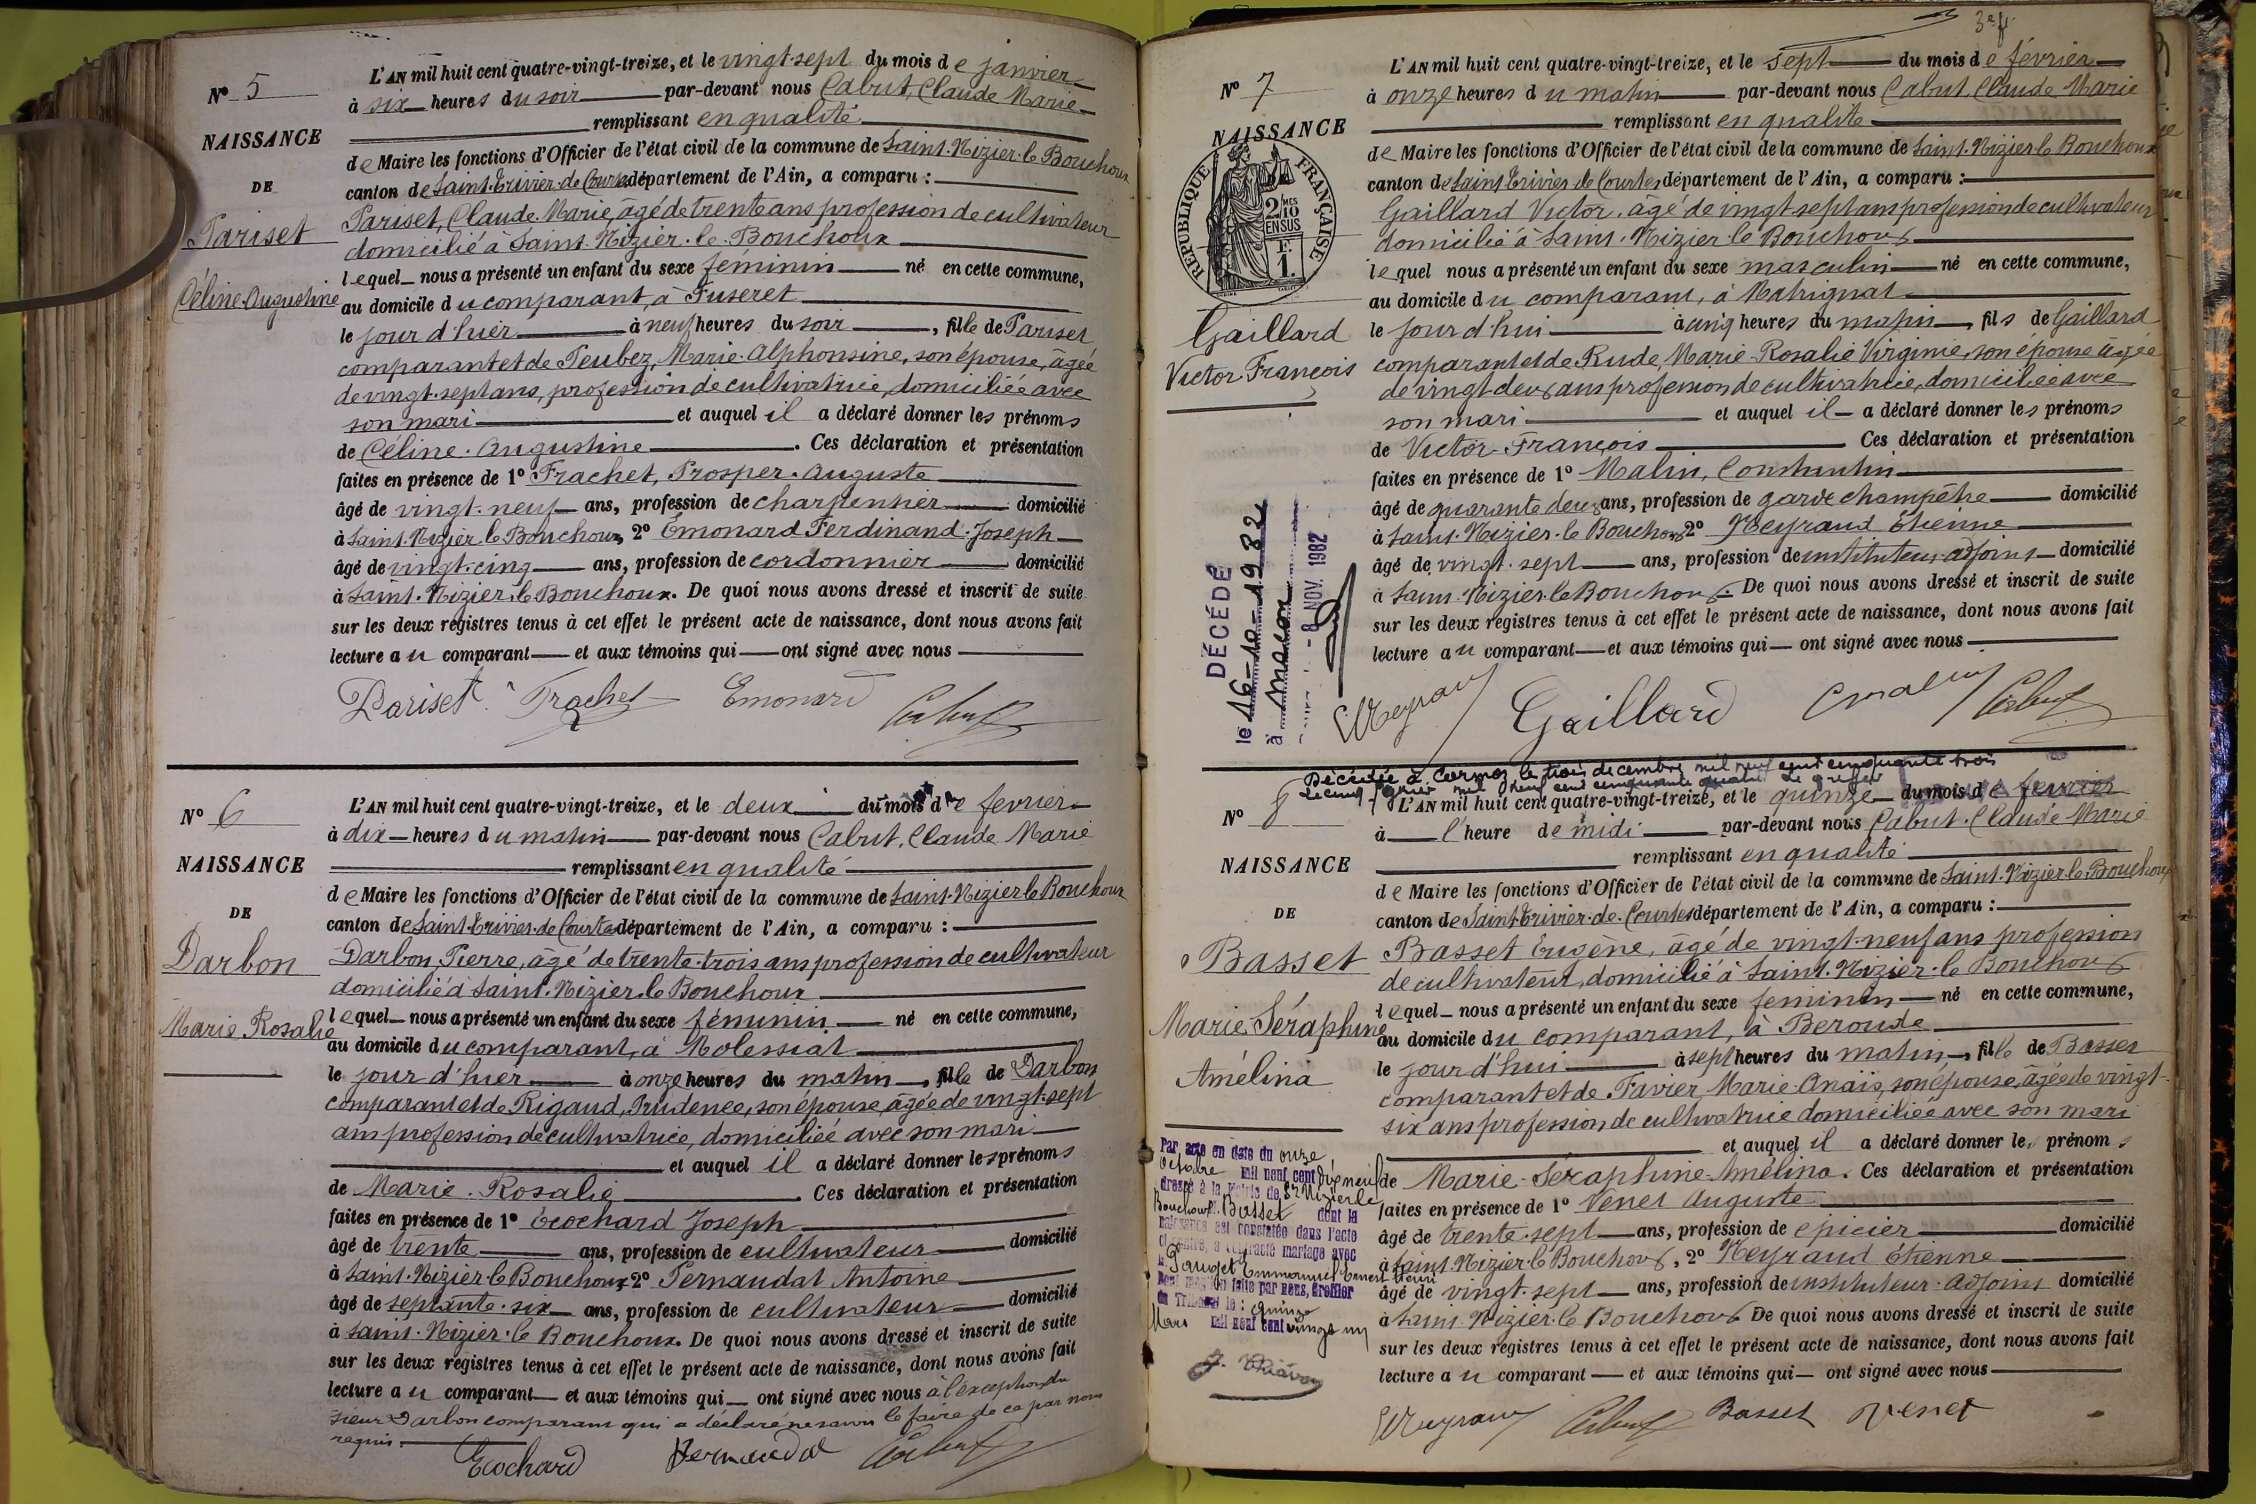 N° 5
NAISSANCE
DE
Pariset
Céline Augustine
L'AN mil huit cent quatre-vingt-treize, et le vingt-sept du mois de janvier
à six heures du soir par-devant nous Cabut, Claude Marie
remplissant en qualité
de Maire les fonctions d'Officier de l'état civil de la commune de Saint-Nizier-le-Bouchoux
canton de Saint-Trivier-de-Courtes département de l'Ain, a comparu :
Pariset, Claude Marie, âgé de trente ans profession de cultivateur
domicilié à Saint-Nizier-le-Bouchoux
lequel nous a présenté un enfant du sexe féminin né en cette commune,
au domicile du comparant, à Fuseret
le jour d'hier à neuf heures du soir, fille de Pariset
comparant et de Peubez, Marie-Alphonsine, son épouse, âgée
de vingt-sept ans, profession de cultivatrice, domiciliée avec
son mari et auquel il a déclaré donner les prénoms
de Céline-Augustine. Ces déclaration et présentation
faites en présence de 1° Frachet, Prosper-Auguste
âgé de vingt-neuf ans, profession de charpentier domicilié
à Saint-Nizier le Bouchoux, 2° Emonard Ferdinand-Joseph
âgé de vingt-cinq ans, profession de cordonnier domicilié
à Saint-Nizier-le Bouchoux. De quoi nous avons dressé et inscrit de suite
sur les deux registres tenus à cet effet le présent acte de naissance, dont nous avons fait
lecture au comparant et aux témoins qui ont signé avec nous
Pariset Frachet Emonard Cabut
N° 6
NAISSANCE
DE
Darbon
Marie Rosalie
L'AN mil huit cent quatre-vingt-treize, et le deux du mois de fevrier
à dix heures du matin par-devant nous Cabut, Claude Marie
remplissant en qualité
de Maire les fonctions d'Officier de l'état civil de la commune de Saint-Nizier le Bouchoux
canton de Saint-Trivier-de-Courtes département de l'Ain, a comparu :
Darbon, Pierre, âgé de trente-trois ans profession de cultivateur
domicilié à Saint-Nizier-le Bouchoux
lequel nous a présenté un enfant du sexe féminin né en cette commune,
au domicile du comparant, à Molessiat
le jour d'hier à onze heures du matin, fille de Darbon
comparant et de Rigaud, Prudence, son épouse, âgée de vingt-sept
ans profession de cultivatrice, domiciliée avec son mari
et auquel il a déclaré donner les prénoms
de Marie-Rosalie. Ces déclaration et présentation
faites en présence de 1° Ecochard Joseph
âgé de trente ans, profession de cultivateur domicilié
à Saint-Nizier-le Bouchoux, 2° Pernaudat Antoine
âgé de septante-six ans, profession de cultivateur domicilié
à Saint-Nizier-le Bouchoux. De quoi nous avons dressé et inscrit de suite
sur les deux registres tenus à cet effet le présent acte de naissance, dont nous avons fait
lecture au comparant et aux témoins qui ont signé avec nous à l'exception du
sieur Darbon comparant qui a déclaré ne savoir le faire de ce par nous
requis.
Ecochard Pernaudat Cabut
N° 7
NAISSANCE
RÉPUBLIQUE FRANÇAISE
2 MES
10
EN SUS
F.
1.
Gaillard
Victor François
DÉCÉDÉ
le 16-10-1982
à Macon
- 8 NOV. 1982
L'AN mil huit cent quatre-vingt-treize, et le sept du mois de février
à onze heures du matin par-devant nous Cabut, Claude Marie
remplissant en qualité
de Maire les fonctions d'Officier de l'état civil de la commune de Saint-Nizier le Bouchoux
canton de Saint Trivier de Courtes département de l'Ain, a comparu :
Gaillard Victor, âgé de vingt-sept ans profession de cultivateur
domicilié à Saint-Nizier-le Bouchoux
lequel nous a présenté un enfant du sexe masculin né en cette commune,
au domicile du comparant, à Matrignat
le jour d'hui à cinq heures du matin, fils de Gaillard
comparant et de Rude, Marie-Rosalie Virginie, son épouse âgée
de vingt-deux ans profession de cultivatrice, domiciliée avec
son mari et auquel il a déclaré donner les prénoms
de Victor-François Ces déclaration et présentation
faites en présence de 1° Malin, Constantin
âgé de quarante deux ans, profession de garde champêtre domicilié
à Saint-Nizier-le Bouchoux 2° Meyraud Etienne
âgé de vingt-sept ans, profession de instituteur-adjoint domicilié
à Saint-Nizier-le Bouchoux. De quoi nous avons dressé et inscrit de suite
sur les deux registres tenus à cet effet le présent acte de naissance, dont nous avons fait
lecture au comparant et aux témoins qui ont signé avec nous
E Meyraud Gaillard C Malin Cabut
Décédée à Cormoz le trois decembre mil neuf cent cinquante trois
Le cinq février mil neuf cent cinquante quatre Le greffier
N° 8
NAISSANCE
DE
Basset
Marie Séraphine
Amélina
Par acte en date du onze
Octobre mil neuf cent dix neuf
dressé à la Mairie de St Nizier le
Bouchoux Basset dont la
naissance est constatée dans l'acte
ci contre, a contracté mariage avec
Pauget Emmanuel Ernest Henri
faite par nous, Greffier
du Tribunal le : quinze
Mars mil neuf cent vingt un
L'AN mil huit cent quatre-vingt-treize, et le quinze du mois de fevrier
à l'heure de midi par-devant nous Cabut, Claude Marie
remplissant en qualité
de Maire les fonctions d'Officier de l'état civil de la commune de Saint-Nizier-le-Bouchoux
canton de Saint-Trivier-de-Courtes département de l'Ain, a comparu :
Basset Eugène, âgé de vingt-neuf ans profession
de cultivateur, domicilié à Saint-Nizier-le Bouchoux
lequel nous a présenté un enfant du sexe feminin né en cette commune,
au domicile du comparant, à Beroude
le jour d'hui à sept heures du matin, fille de Basset
comparant et de Favier, Marie-Anaïs, son épouse, âgée de vingt-
six ans profession de cultivatrice domiciliée avec son mari
et auquel il a déclaré donner les prénoms
de Marie-Séraphine-Amélina. Ces déclaration et présentation
faites en présence de 1° Venet Auguste
âgé de trente-sept ans, profession de epicier domicilié
à Saint-Nizier-le Bouchoux, 2° Meyraud Etienne
âgé de vingt-sept ans, profession de instituteur-adjoint domicilié
à Saint-Nizier-le Bouchoux De quoi nous avons dressé et inscrit de suite
sur les deux registres tenus à cet effet le présent acte de naissance, dont nous avons fait
lecture au comparant et aux témoins qui ont signé avec nous
E Meyraud Cabut Basset Venet